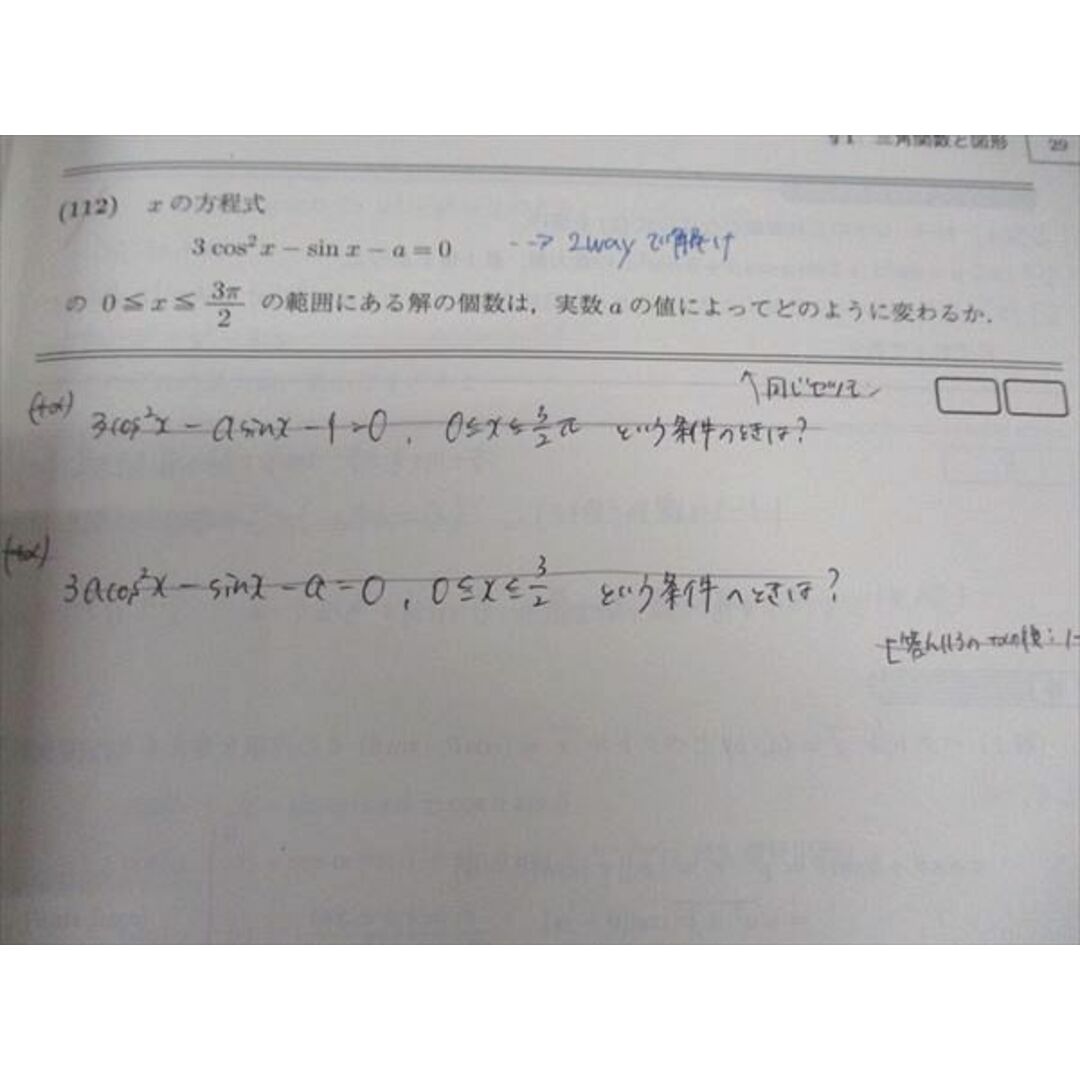 §1 三角関数と図形 29
(112) x の方程式
3 cos² x − sin x − a = 0 --> 2way で解け
の 0 ≦ x ≦ 3π/2 の範囲にある解の個数は,実数 a の値によってどのように変わるか.
↑同じセツモン
(+α) 3cos²x − a sinx − 1 = 0 , 0≦x≦3/2π という条件のときは?
(+α)
3acos²x − sinx − a = 0 , 0≦x≦3/2 という条件のときは?